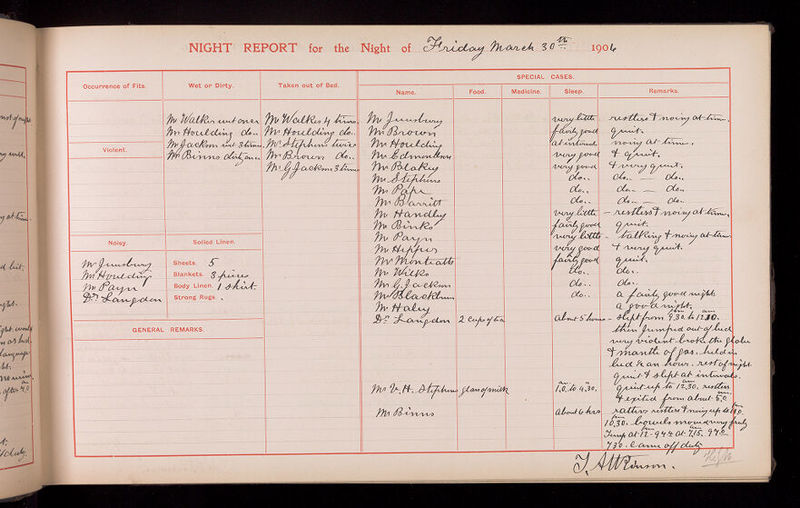 NIGHT REPORT for the Night of Friday March 30th 1906
Occurrence of Fits.
Wet or Dirty.
Taken out of Bed.
SPECIAL CASES.
Name.
Food.
Medicine.
Sleep.
Remarks.
Mr Walker wet once
Mr Houlding do..
Mr Jackson wet 3 times
Mr Binns dirty once
Mr Walker 4 times.
Mr Houlding do..
Mr Stephens twice
Mr Brown do..
Mr G Jackson 3 times
Violent.
Noisy.
Mr Houlding
Mr Payn
Dr Langdon
Soiled Linen.
Sheets. 5
Blankets. 3 pieces
Body Linen. 1 Shirt.
Strong Rugs.
GENERAL REMARKS.
very little restless & noisy at times.
Mr Brown fairly good quiet.
Mr Houlding at intervals noisy at times.
Mr Edmondson very good & quiet.
Mr Blakey very good & very quiet.
Mr Stephens do.. do.. do..
Mr Pape do.. do.. do..
Mr Barritt do.. do.. do..
Mr Handley very little restless & noisy at times.
Mr Binks fairly good quiet.
Mr Payn very little talking & noisy at times
very good & very quiet.
Mr Monteath fairly good quiet.
Mr Wilks do.. do..
Mr G. Jackson do.. do..
Mr Blackburn do.. a fairly good night
Mr Haley a good night.
Dr Langdon 2 Cups of tea about 5 hours slept from 9.30. to 12.30.
then jumped out of bed
very violent broke the globe
& mantle of gas. held in
bed ¾ an hour. rest of night
quiet & slept at intervals.
Mr V. H. Stephens glass of milk 1.0. to 4.30. quiet up to 12.30. restless
& exited from about 5.0
Mr Binns about 6 hrs rather restless & noisy up to
10.30. bowels moved very freely
Temp at 12 - 99.2 at 7.15.
7.30. Came off duty
J. Atkinson.